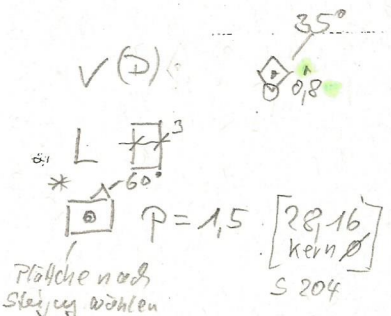 35°
V (D)
0,8
L 3
60°
P = 1,5 [28,16
Kern Ø]
S 204
Plättchen nach
Steigung wählen